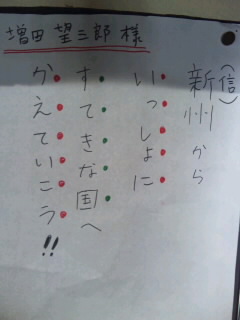 増田 望三郎 様
(信)
新州 から
いっしょに
すてきな国へ
かえていこう!!